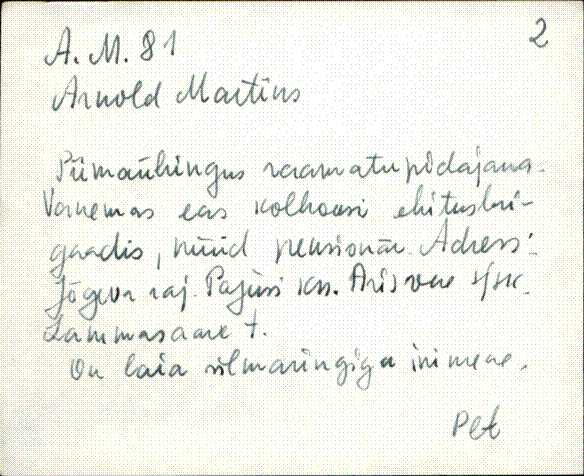 2
A. M. 81
Arnold Martins
Piimaühingus raamatupidajana.
Vanemas eas kolhoosi ehitusbri-
gaadis, nüüd pensionär. Adress:
Jõgeva raj. Pajusi kn. Arisvere s/sk.
Lammasaare t.
On laia silmaringiga inimene.